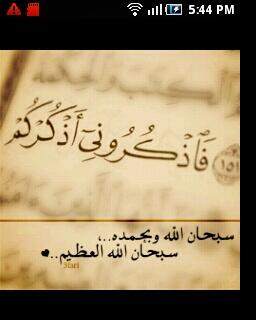 5:44 PM
فَٱذْكُرُونِىٓ أَذْكُرْكُمْ
١٥١
سبحان الله وبحمده..،
سبحان الله العظيم..♥